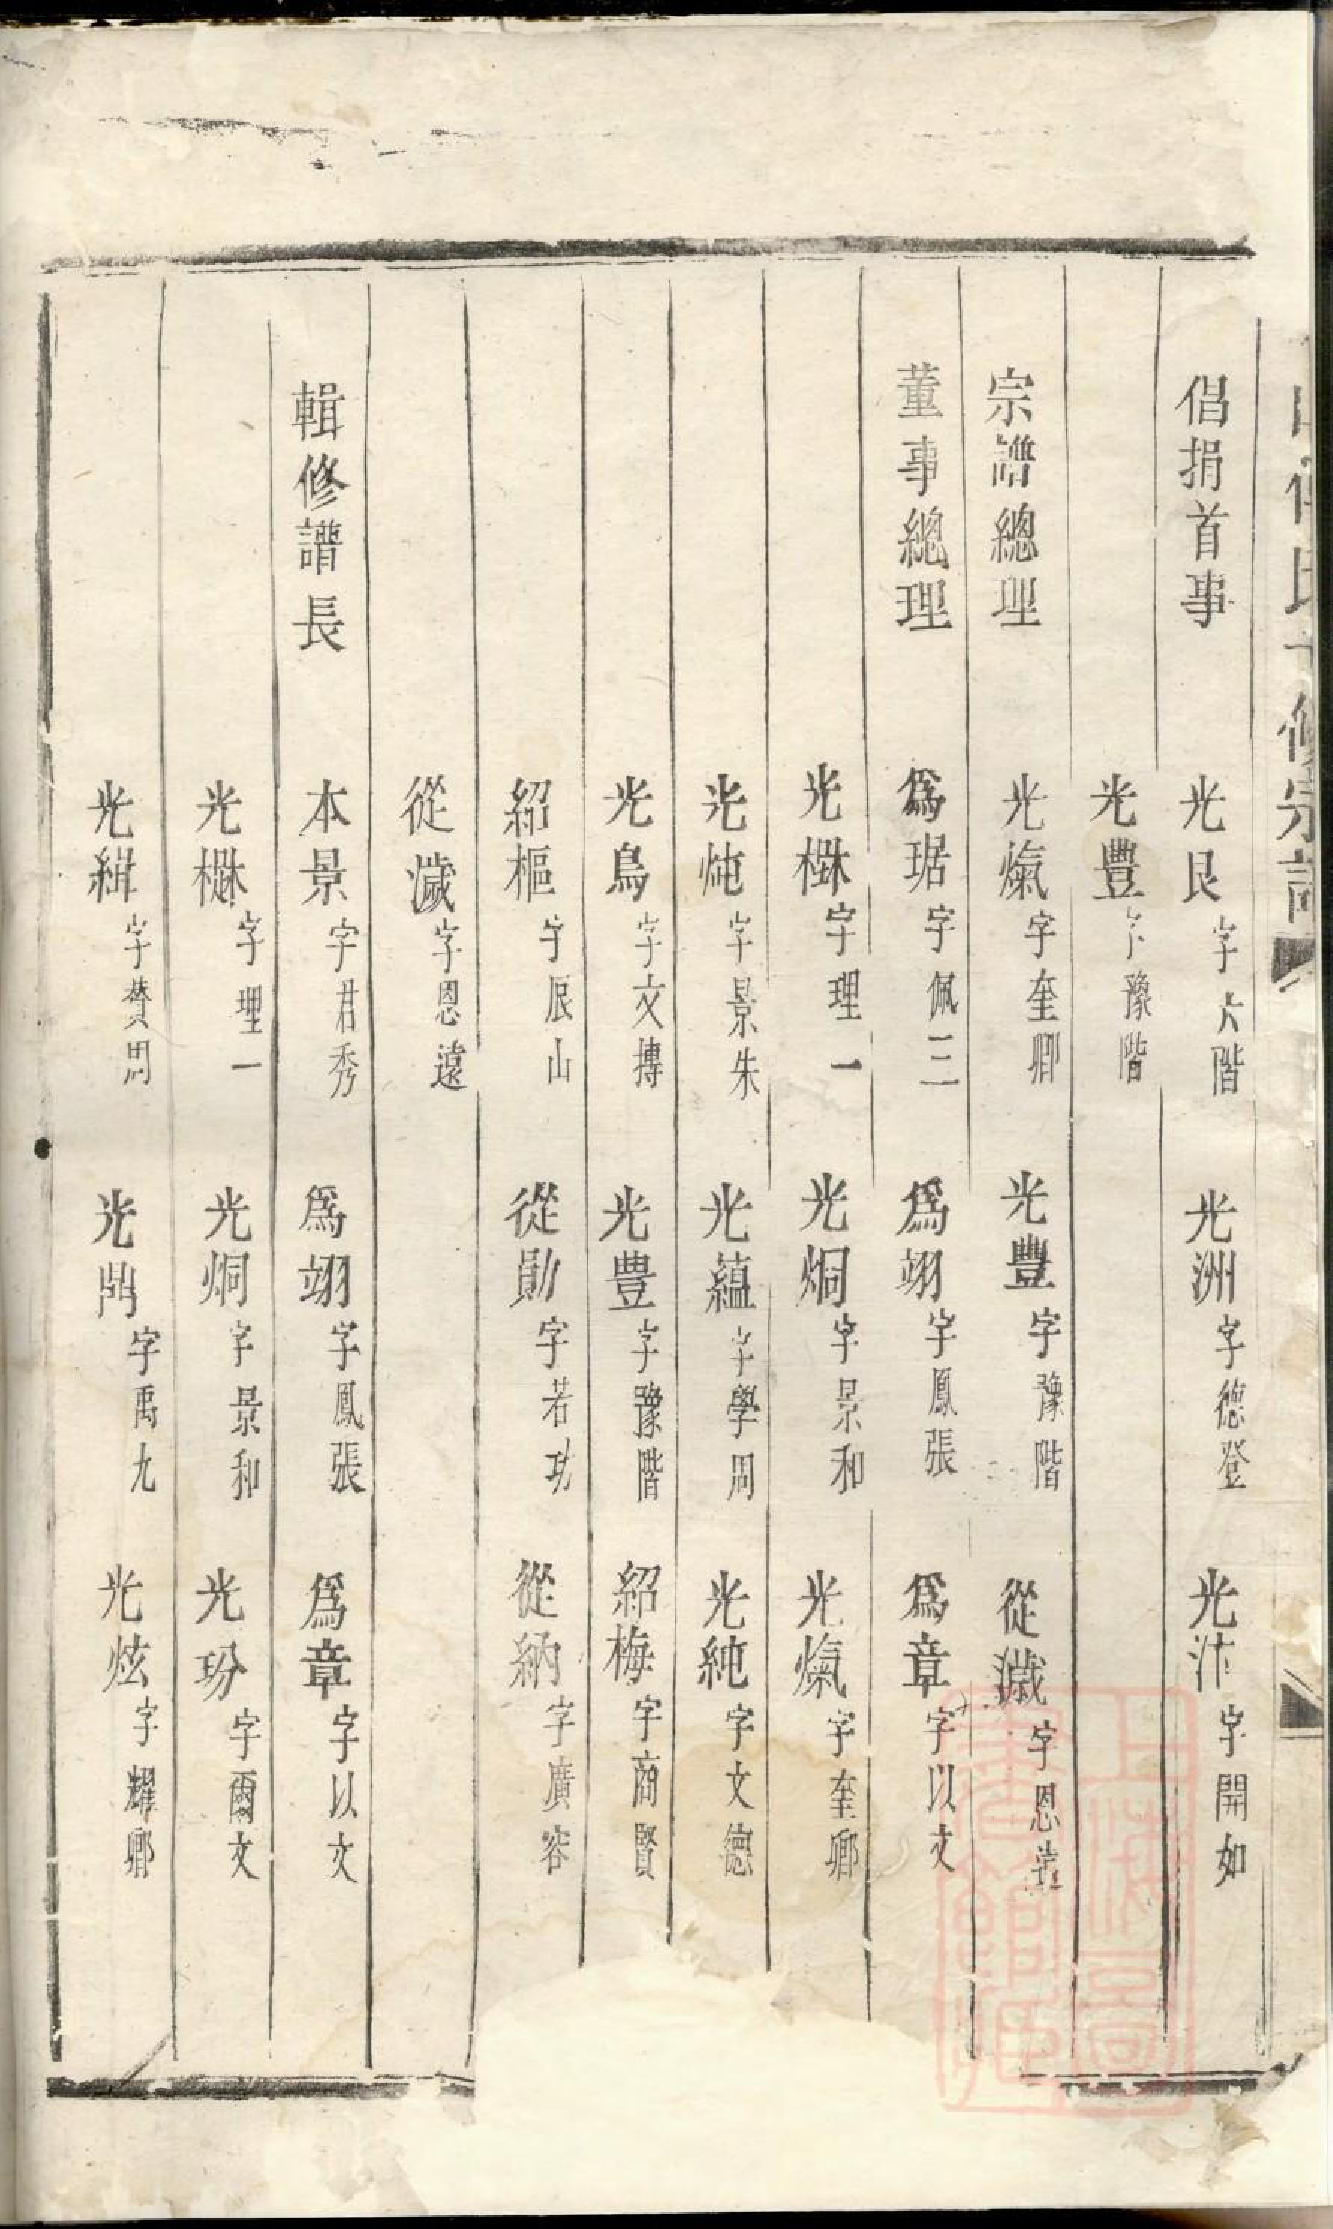 倡捐首事 光艮字六階 光洲字德登 光汴字開如
光豐字豫階
宗譜總理 光熂字奎卿 光豐字豫階 從濊字恩遠
董事總理 爲琚字佩三 爲翊字鳳張 爲章字以文
光楙字理一 光烱字景和 光熂字奎卿
光炖字景朱 光蘊字學周 光純字文德
光鳥字文摶 光豐字豫階 紹梅字商賢
紹樞字辰山 從勛字若功 從納字廣容
從濊字恩遠
輯修譜長 本景字君秀 爲翊字鳳張 爲章字以文
光楙字理一 光烱字景和 光玢字爾文
光緝字贊周 光 字禹九 光炫字耀卿